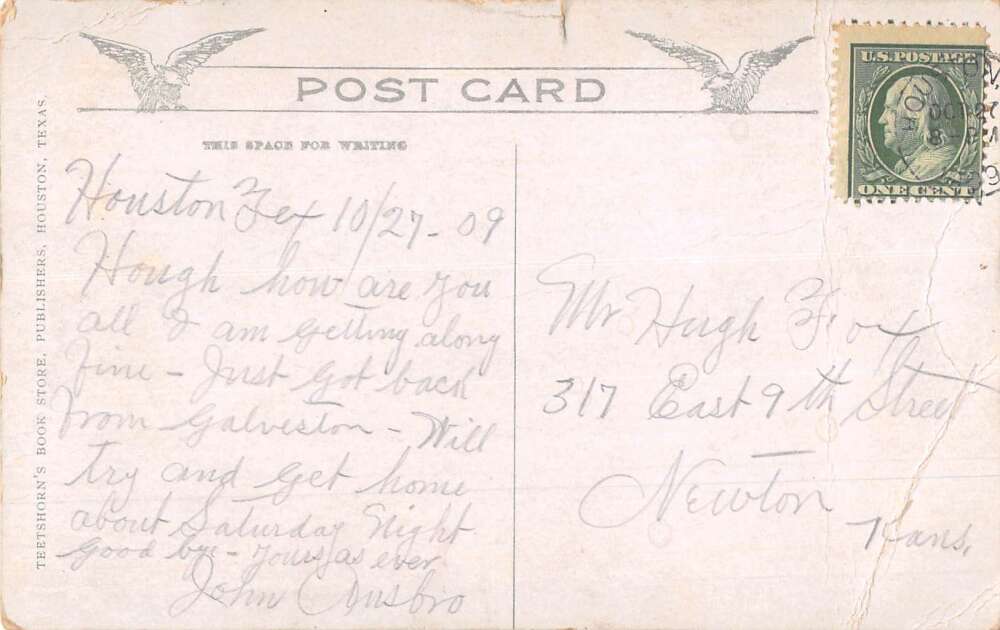 POST CARD
THIS SPACE FOR WRITING
TEETSHORN'S BOOK STORE, PUBLISHERS, HOUSTON, TEXAS.
Houston Tex 10/27-09
Hough how are you
all I am getting along
fine - Just got back
from Galveston - Will
try and get home
about Saturday Night
Good bye - yours as ever
John Ansbro
U.S. POSTAGE
ONE CENT
OCT 2
8
Mr Hugh Fox
317 East 9th Street
Newton
Kans.